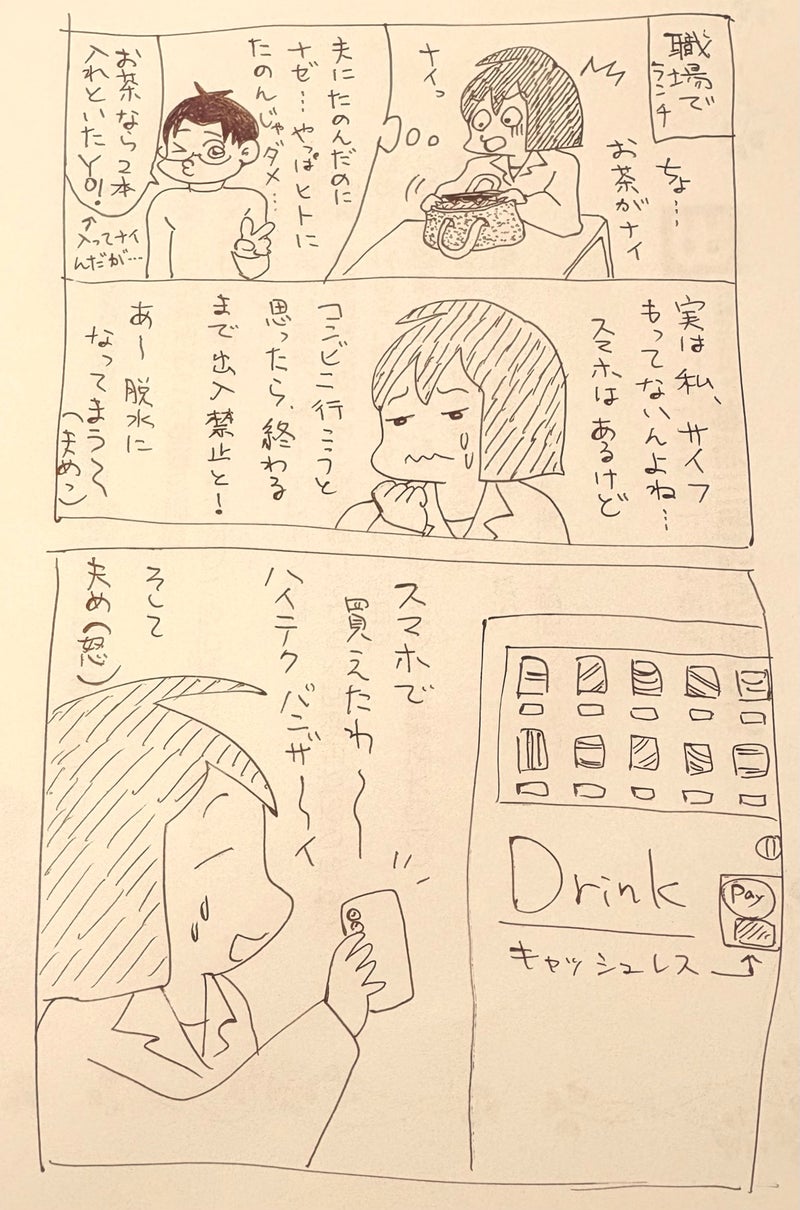 職場で
ランチ
ちょ…
お茶がナイ
ナイっ
夫にたのんだのに
ナゼ…やっぱヒトに
たのんじゃダメ…
お茶なら2本
入れといたYO!
↑
入ってナイ
んだが…
実は私、サイフ
もってないんよね…
スマホはあるけど
コンビニ行こうと
思ったら、終わる
まで出入禁止と!
あ〜脱水に
なってまう〜
(夫めっ)
スマホで
買えたわ〜〜
ハイテクバンザ〜〜イ
そして
夫め(怒)
Drink
Pay
キャッシュレス→